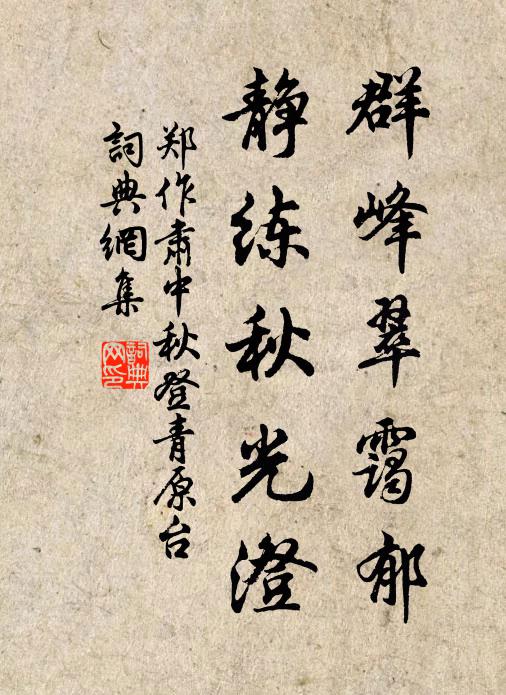 群峰翠霭郁
静练秋光澄
郑作肃中秋登青原台
詞典網集
詞典网印